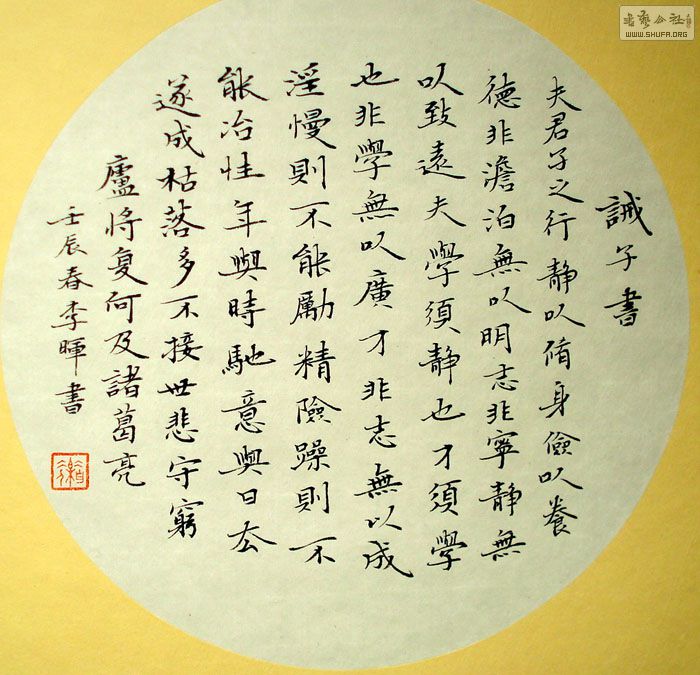 誡子書
夫君子之行靜以脩身儉以養
德非澹泊無以明志非寧靜無
以致遠夫學須靜也才須學
也非學無以廣才非志無以成
淫慢則不能勵精險躁則不
能冶性年與時馳意與日去
遂成枯落多不接世悲守窮
廬將复何及諸葛亮
壬辰春李暉書
書藝公社
WWW.SHUFA.ORG